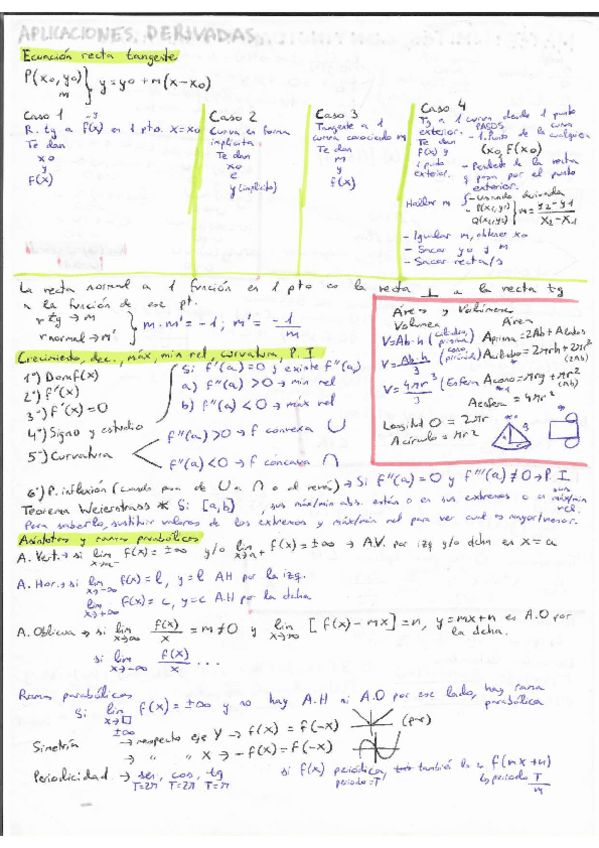 APLICACIONES DERIVADAS
Ecuación recta tangente
P(x₀, y₀) } y = y₀ + m(x - x₀)
m
Caso 1
R. tg a f(x) en 1 pto. x = x₀
Te dan
x₀
y
f(x)
Caso 2
Curva en forma
implícita
Te dan
x₀
e
y (implícita)
Caso 3
Tangente a 1
curva conociendo m
Te dan
m
y
f(x)
Caso 4
Tg a 1 curva desde 1 punto
exterior. PASOS
Te dan
f(x) y
1 punto
exterior.
- 1. Punto de la curva cualquiera
(x₀, f(x₀))
- Pendiente de la recta
q pasa por el punto
exterior.
Hallar m { - usando derivada
- P(x₁, y₁)
Q(x₂, y₂) } m = y₂ - y₁ / x₂ - x₁
- Igualar m, obtener x₀
- Sacar y₀ y m
- Sacar recta/s
La recta normal a 1 función en 1 pto es la recta ⊥ a la recta tg
a la función de ese pt.
r tg → m
r normal → m' } m · m' = -1 ; m' = - 1/m
Áreas y Volúmenes
Volumen
V = Ab · h (cilindro, prisma)
V = Ab · h / 3 (cono, pirámide)
V = 4πr³ / 3 (Esfera)
Área
Aprisma = 2Ab + Alados
Acilindro = 2πrh + 2πr² (2Ab)
Acono = πrg + πr² (Ab)
Aesfera = 4πr²
Longitud O = 2πr
Acírculo = πr²
Crecimiento, dec., máx, mín rel, curvatura, P. I
1º) Dom f(x)
2º) f'(x)
3º) f'(x) = 0
4º) Signo y estudio
5º) Curvatura
Si f'(a) = 0 y existe f''(a)
a) f''(a) > 0 → mín rel
b) f''(a) < 0 → máx rel
f''(a) > 0 → f convexa ∪
f''(a) < 0 → f cóncava ∩
6º) P. inflexión (cuando pasa de ∪ a ∩ o al revés) → Si f''(a) = 0 y f'''(a) ≠ 0 → P. I
Teorema Weierstrass * Si [a, b], sus máx/mín abs. están o en sus extremos o en máx/mín rel.
Para saberlo, sustituir valores de los extremos y máx/mín rel para ver cual es mayor/menor.
Asíntotas y ramas parabólicas
A. Vert. → si lim x→a⁻ f(x) = ±∞ y/o lim x→a⁺ f(x) = ±∞ → A.V. por izq y/o dcha en x = a
A. Hor. → si lim x→-∞ f(x) = l, y = l AH por la izq.
lim x→+∞ f(x) = c, y = c A.H por la dcha
A. Oblicua → si lim x→∞ f(x)/x = m ≠ 0 y lim x→∞ [f(x) - mx] = n, y = mx + n es A.O por
la dcha.
si lim x→-∞ f(x)/x ...
Ramas parabólicas
Si lim x→□ ±∞ f(x) = ±∞ y no hay A.H ni A.O por ese lado, hay rama
parabólica
Simetría → respecto eje Y → f(x) = f(-x) (par)
→ " " X → -f(x) = f(-x)
Periodicidad → sen, cos, tg
T=2π T=2π T=π
si f(x) periódica, también lo es f(mx + n)
periodo = T
↳ periodo T/m